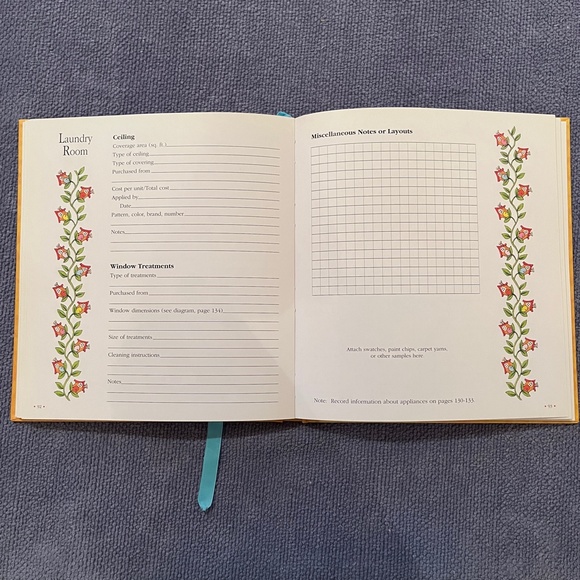 Laundry
Room
Ceiling
Coverage area (sq. ft.)
Type of ceiling
Type of covering
Purchased from
Cost per unit/Total cost
Applied by
Date
Pattern, color, brand, number
Notes
Window Treatments
Type of treatments
Purchased from
Window dimensions (see diagram, page 134)
Size of treatments
Cleaning instructions
Notes
Miscellaneous Notes or Layouts
Attach swatches, paint chips, carpet yarns,
or other samples here
Note: Record information about appliances on pages 130-133